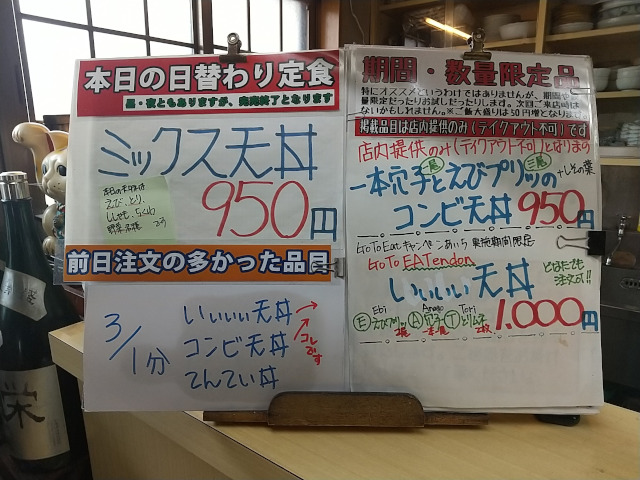 本日の日替わり定食
昼・夜ともありますが、売切終了となります
ミックス天丼
本日の天ぷらは
えび、とり、
ししゃも、ちくわ
野菜各種
950円
前日注文の多かった品目
3/1分
いぃぃぃ天丼
コンビ天丼
てんてい丼
コレです
期間・数量限定品
特にオススメというわけではありませんが、期間や
量限定だったりお試しだったりします。次回ご来店時に
ないかもしれません。※ご飯大盛りは50円増となります
掲載品目は店内提供のみ(テイクアウト不可)です
店内提供のみ(テイクアウト不可)となります
一本穴子とえびプリッの
コンビ天丼 950円
GoToEatキャンペーンあいち 実施期間限定
GoTo EATendon
いぃぃぃ天丼
どなたでも
注文可!!
Ebi Anago Tori
E えびプリッ A 穴子 T とりムネ
1.000円
栄